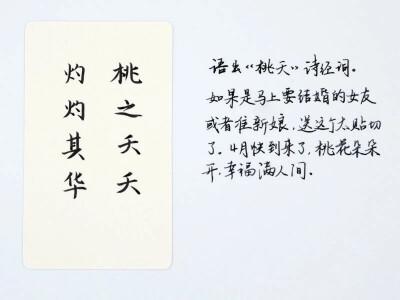 桃之夭夭
灼灼其华
语出“桃夭”诗经词。
如果是马上要结婚的女友
或者准新娘，送这个太贴切
了。4月快到来了，桃花朵朵
开，幸福满人间。